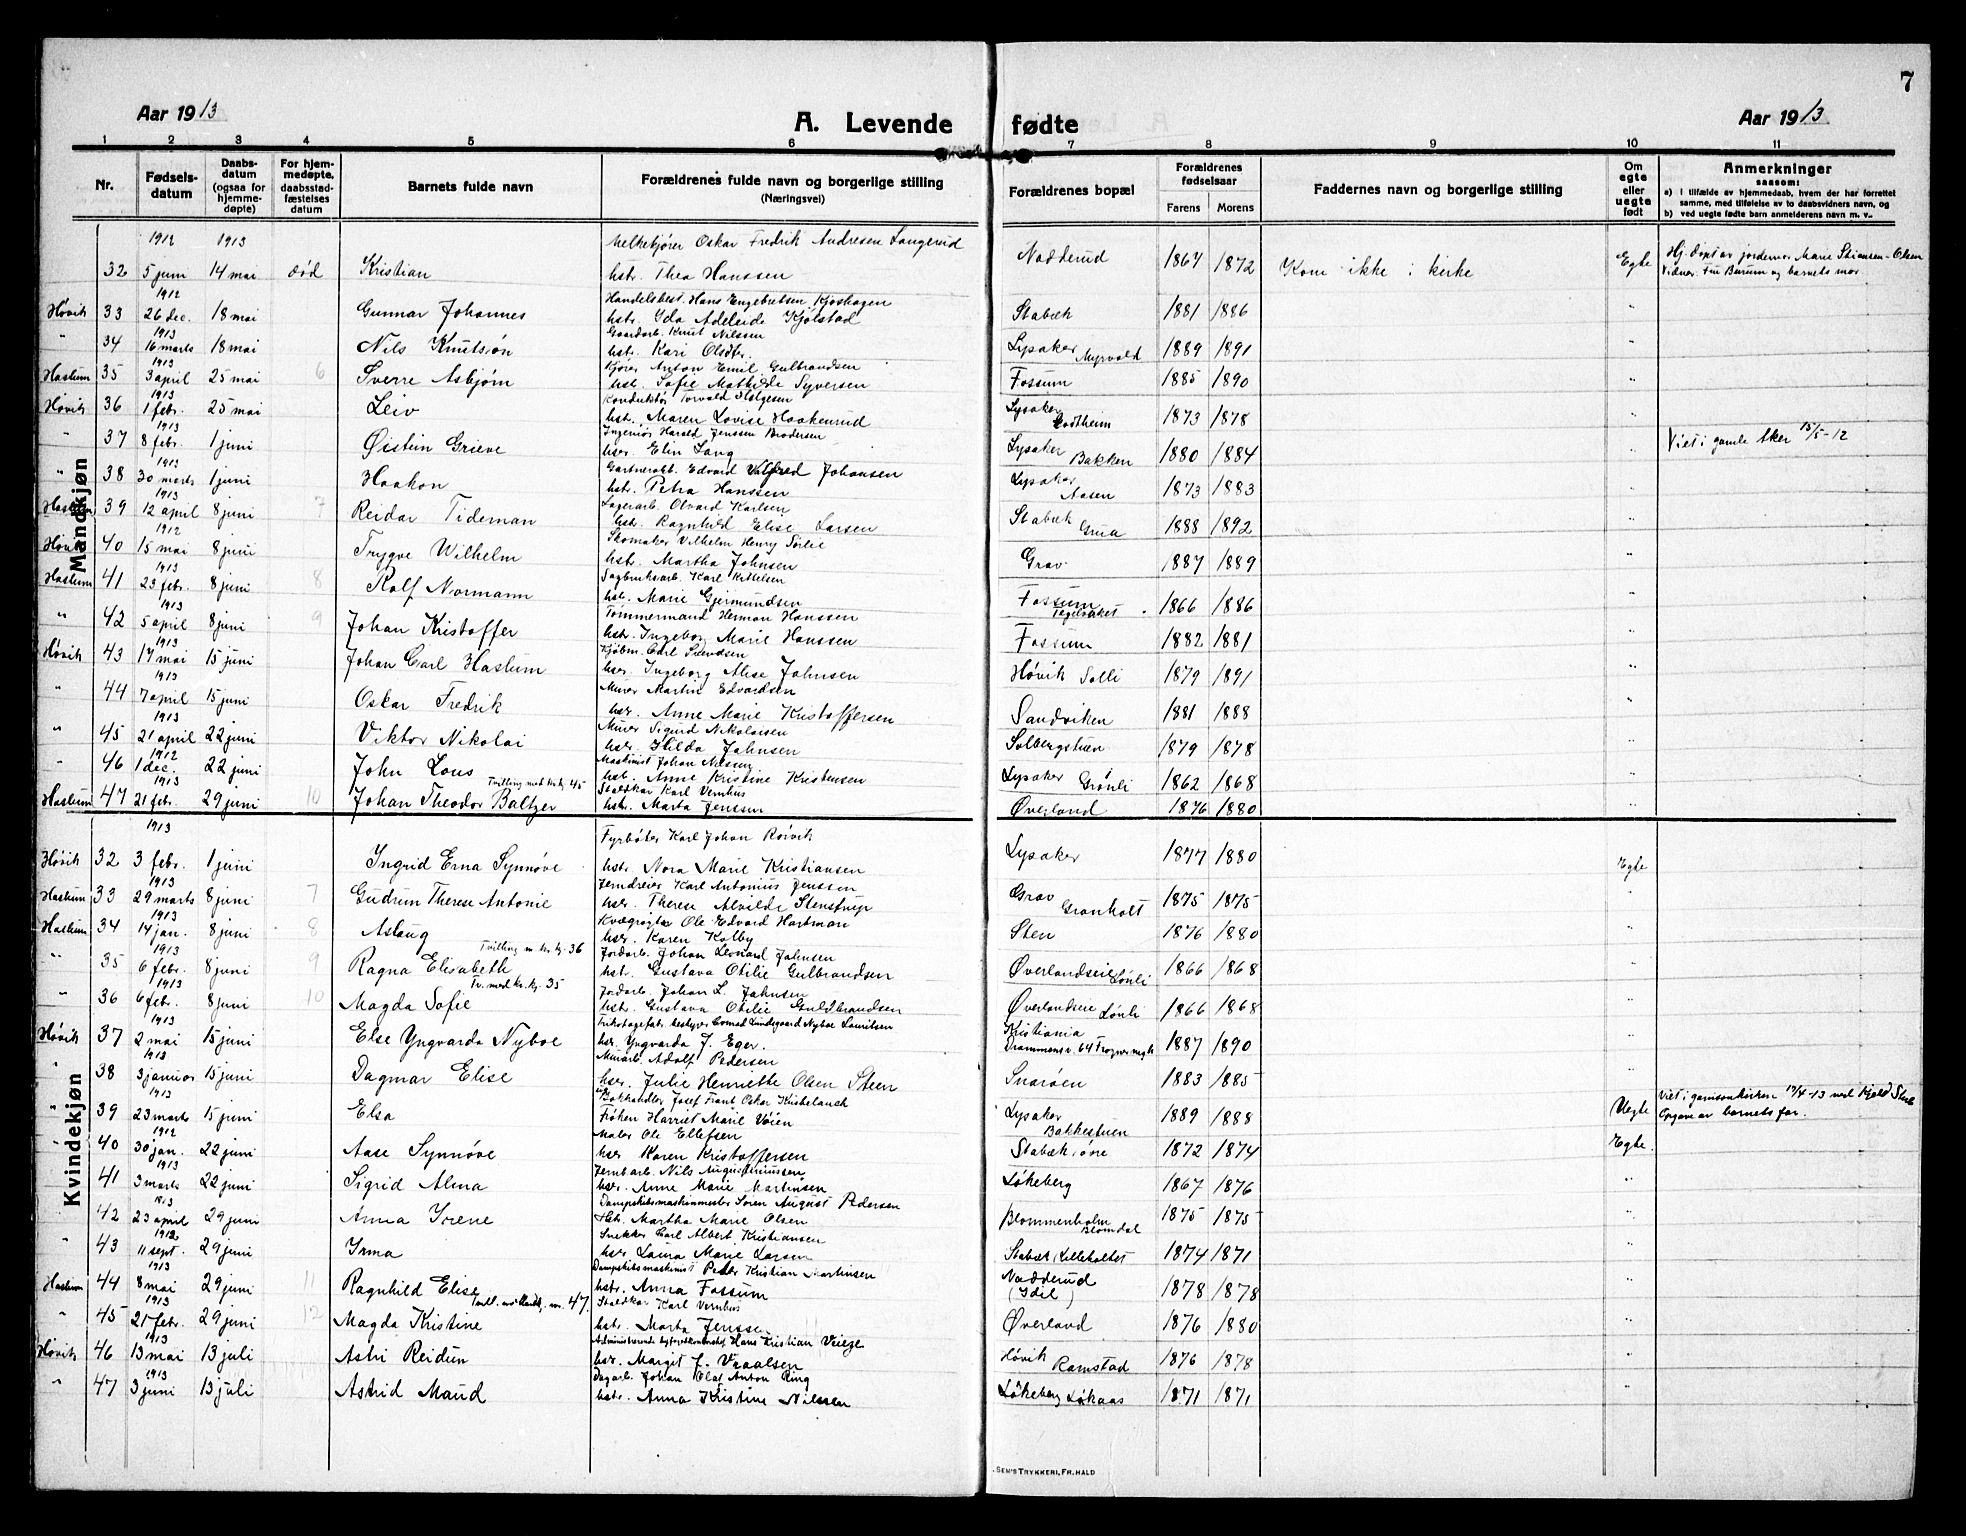 7
Aar 1913
A. Levende fødte
Aar 1913
1 2 3 4 5 6 7 8 9 10 11
Nr.
Fødsels-datum
Daabs-datum (ogsaa for hjemme-døpte)
For hjem-medøpte, daabsstad-fæstelses datum
Barnets fulde navn
Forældrenes fulde navn og borgerlige stilling (Næringsvei)
Forældrenes bopæl
Forældrenes fødselsaar
Farens Morens
Faddernes navn og borgerlig stilling
Om egte eller uegte født
Anmerkninger saasom:
a) i tilfælde av hjemmedaab, hvem der har forrettet samme, med tilføielse av to daabsvidners navn, og
b) ved uegte fødte barn anmelderens navn m. v..
Mandkjøn
1912 1913 Melkekjører Oskar Fredrik Andresen Langerud
32 5 juni 14 mai død Kristian hstr. Thea Hanssen Nadderud 1864 1872 Kom ikke i kirke Egte Hj. døpt av jordemor Marie Stiansen-Olsen
1912 Handelsbest. Hans Engebretsen Kjoshagen
Høvik 33 26 dec. 18 mai Gunnar Johannes hstr. Ida Adelaide Kjølstad Stabæk 1881 1886 "
1913 Gaardarb. Knut Nilssen
" 34 16 marts 18 mai Nils Knutsøn hstr. Kari Olsdtr. Lysaker Myrvold 1889 1891 "
1913 Kjører Anton Emil Gulbrandsen
Haslum 35 3 april 25 mai 6 Sverre Asbjørn hst. Sofie Mathilde Syversen Fossum 1885 1890 "
1913 Konduktør Torvald Helgesen
Høvik 36 1 febr. 25 mai Leiv hst. Maren Lovise Haakenrud Lysaker Godtheim 1873 1878 "
1913 Ingeniør Harald Jenssen Brodersen
" 37 8 febr. 1 juni Øistein Grieve hsr. Elin Lang Lysaker Bakken 1880 1884 " Viet i gamle Aker 15/5-12
1913 Gartnerarb. Edvard Valfred Johansen
" 38 30 marts 1 juni Haakon hstr. Petra Hanssen Lysaker Aasen 1873 1883 "
1913 Lagerarb. Olvard Karlsen
Haslum 39 12 april 8 juni 7 Reidar Tideman hst. Ragnhild Elise Larsen Stabæk Grua 1888 1892 "
1912 Skomaker Vilhelm Henry Sørlie
Høvik 40 15 mai 8 juni Trygve Wilhelm hstr. Martha Johnsen Grav 1887 1889 "
1913 Sagbruksarb. Karl Kittelsen
Haslum 41 23 febr. 8 juni 8 Rolf Normann hst. Marie Gjermundsen Fossum Teglverket 1866 1886 "
1913 Tømmermand Herman Hanssen
" 42 5 april 8 juni 9 Johan Kristoffer hstr. Ingeborg Marie Hanssen Fossum 1882 1881 "
1913 Kjøbm. Carl Svendsen
Høvik 43 17 mai 15 juni Johan Carl Haslum hsr. Ingeborg Alise Johnsen Høvik Solli 1879 1891 "
1913 Murer Martin Edvardsen
" 44 7 april 15 juni Oskar Fredrik hsr. Anne Marie Kristoffersen Sandviken 1881 1888 "
1913 Murer Sigurd Nikolaisen
" 45 21 april 22 juni Viktor Nikolai hsr. Hilda Johnsen Solbergstuen 1879 1878 "
1912 Maskinist Johan Nilsen
" 46 1 dec. 22 juni John Lous hst. Anne Kristine Kristensen Lysaker Grønli 1862 1868 "
1913 Tvilling med kv.kj 45 Staldkar Karl Vernhus
Haslum 47 21 febr. 29 juni 10 Johan Theodor Baltzer hstr. Marta Jenssen Øverland 1876 1880 "
Kvindekjøn
1913 Fyrbøter Karl Johan Rørvik
Høvik 32 3 febr. 1 juni Ingrid Erna Synnøve hstr. Nora Marie Kristiansen Lysaker 1877 1880 Egte
1913 Jerndreier Karl Antonius Jenssen
Haslum 33 29 marts 8 juni 7 Gudrun Therese Antonie hsr. Therese Alvilde Stenstrup Grav Granholt 1875 1875 "
1913 Kvægrøgter Ole Edvard Hartman
Haslum 34 14 jan. 8 juni 8 Aslaug hsr. Karen Kolby Sten 1876 1880 "
1913 Tvilling m kv kj. 36 Jordarb. Johan Leonard Johnsen
" 35 6 febr. 8 juni 9 Ragna Elisabeth hst. Gustava Otilie Gulbrandsen Øverlandseie Lønli 1866 1868 "
1913 Tv. med kv. kj. 35 Jordarb. Johan L. Johnsen
" 36 6 febr. 8 juni 10 Magda Sofie hst. Gustava Otilie Guldbrandsen Øverlandseie Lønli 1866 1868 "
1913 Trikotagefabr. bestyrer Conrad Lindegaard Nyboe Lauritsen
Høvik 37 2 mai 15 juni Else Yngvarda Nyboe hsr. Yngvarda J. Eger. Kristiania Drammensv. 64 Frogner mgh 1887 1890 "
1913 Murarb. Adolf Pedersen
" 38 3 januar 15 juni Dagmar Elise hsr. Julie Henriette Olsen Steen Snarøen 1883 1885 "
1913 Bokhandler Josef Frant Oskar
" 39 23 marts 15 juni Elsa Frøken Harriet Marie Vøien Lysaker Bakkestuen 1889 1888 Uegte Viet i garnisonskirken 17/4-13 ved Kjeld Stub Opgave av barnets far.
1912 Maler Ole Ellefsen
" 40 30 jan. 22 juni Aase Synnøve hsr Karen Kristoffersen Stabæk øvre 1872 1874 Egte.
1913 Jernbarb. Nils Augustinussen
41 3 marts 22 juni Sigrid Alma hsr. Anne Marie Martinsen Løkeberg 1867 1876 "
1913 Dampskibsmaskinmester Søren August Pedersen
42 23 april 29 juni Anna Irene Hst. Martha Marie Olsen Blommenholm Blomdal 1875 1875 "
1912 Snekker Carl Albert Kristiansen
" 43 11 sept. 29 juni Irma hsr. Laura Marie Larsen Stabæk Lilleholtet 1874 1871 "
1913 Dampskibsmaskinist Peder Kristian Martinsen
Haslum 44 8 mai 29 juni 11 Ragnhild Elise hstr. Anna Fossum Nadderud (Idil) 1878 1878 "
1913 47. Staldkar Karl Vernhus
" 45 21 febr. 29 juni 12 Magda Kristine hstr. Marta Jensse. Øverland 1876 1880 "
1913 Hans Kristian
Høvik 46 13 mai 13 juli Astri Reidun hsr. Margit J. Vraalsen Høvik Ramstad 1876 1878 "
1913 Dagarb. Johan Olaf Anton Ring
" 47 3 juni 13 juli Astrid Maud hstr. Anna Kristine Nilssen Løkeberg Løkaas 1871 1871 "
SEM'S TRYKKERI, FR.HALD